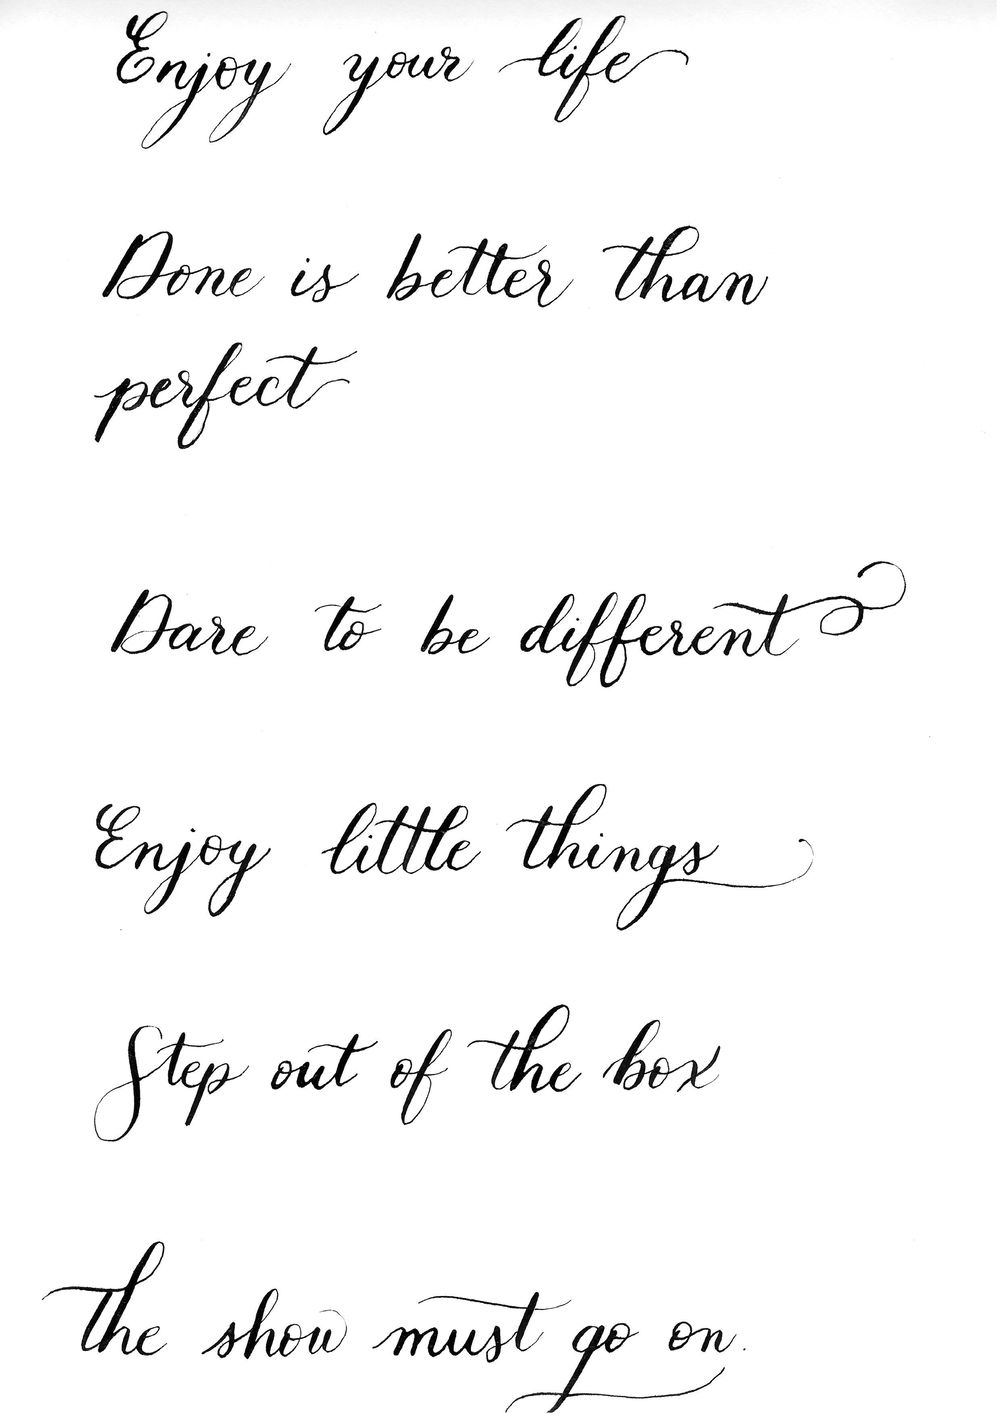 Enjoy your life
Done is better than
perfect
Dare to be different
Enjoy little things
Step out of the box
The show must go on.